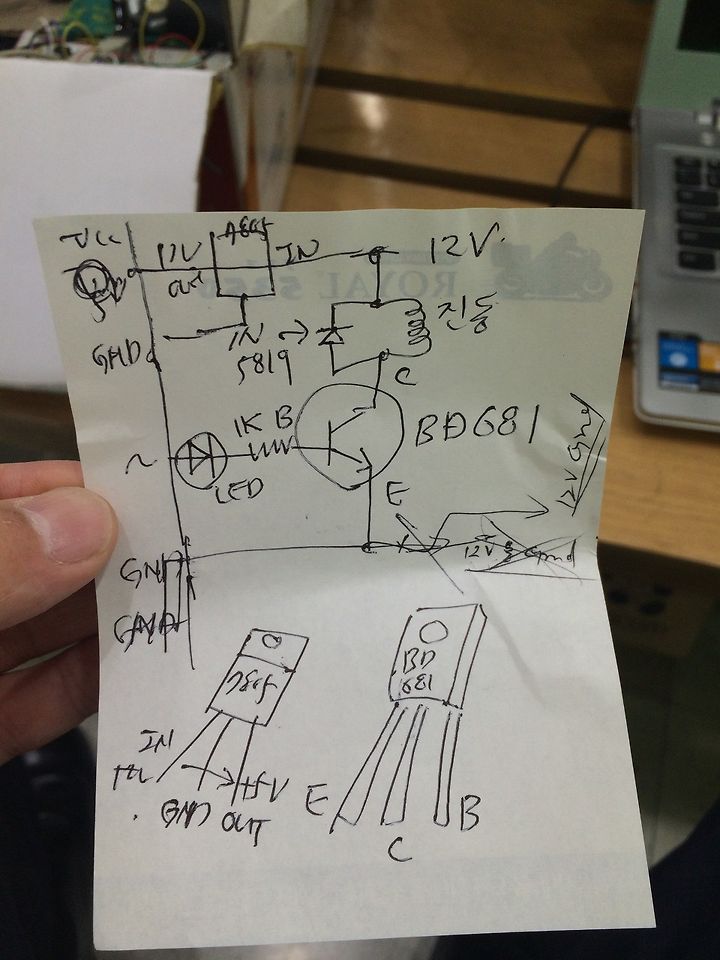 Vcc
7805
OUT
IN
12V
5V
GND
IN
5819
진동
C
1K B
BD681
~
LED
E
12V Gnd
12V Gnd
GND
GND
BD
681
7805
IN
GND OUT
+5V
E
C
B